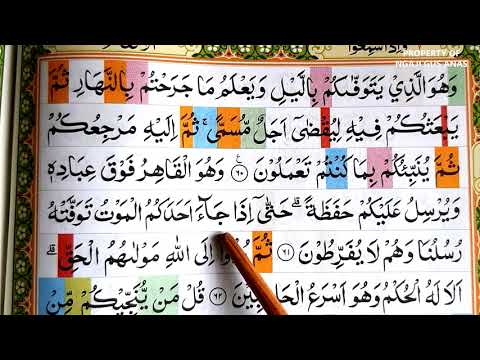 PROPERTY OF
NGAJI GUS ANAS
وَهُوَ الَّذِيْ يَتَوَفّٰىكُمْ بِالَّيْلِ وَيَعْلَمُ مَا جَرَحْتُمْ بِالنَّهَارِ ثُمَّ
يَبْعَثُكُمْ فِيْهِ لِيُقْضٰٓى اَجَلٌ مُّسَمًّىۚ ثُمَّ اِلَيْهِ مَرْجِعُكُمْ
ثُمَّ يُنَبِّئُكُمْ بِمَا كُنْتُمْ تَعْمَلُوْنَ ࣖ ٦٠ وَهُوَ الْقَاهِرُ فَوْقَ عِبَادِهٖ
وَيُرْسِلُ عَلَيْكُمْ حَفَظَةً ۗ حَتّٰىٓ اِذَا جَاۤءَ اَحَدَكُمُ الْمَوْتُ تَوَفَّتْهُ
رُسُلُنَا وَهُمْ لَا يُفَرِّطُوْنَ ٦١ ثُمَّ اِلَى اللّٰهِ مَوْلٰىهُمُ الْحَقِّۗ
اَلَا لَهُ الْحُكْمُ وَهُوَ اَسْرَعُ ٦٢ قُلْ مَنْ يُّنَجِّيْكُمْ مِّنْ